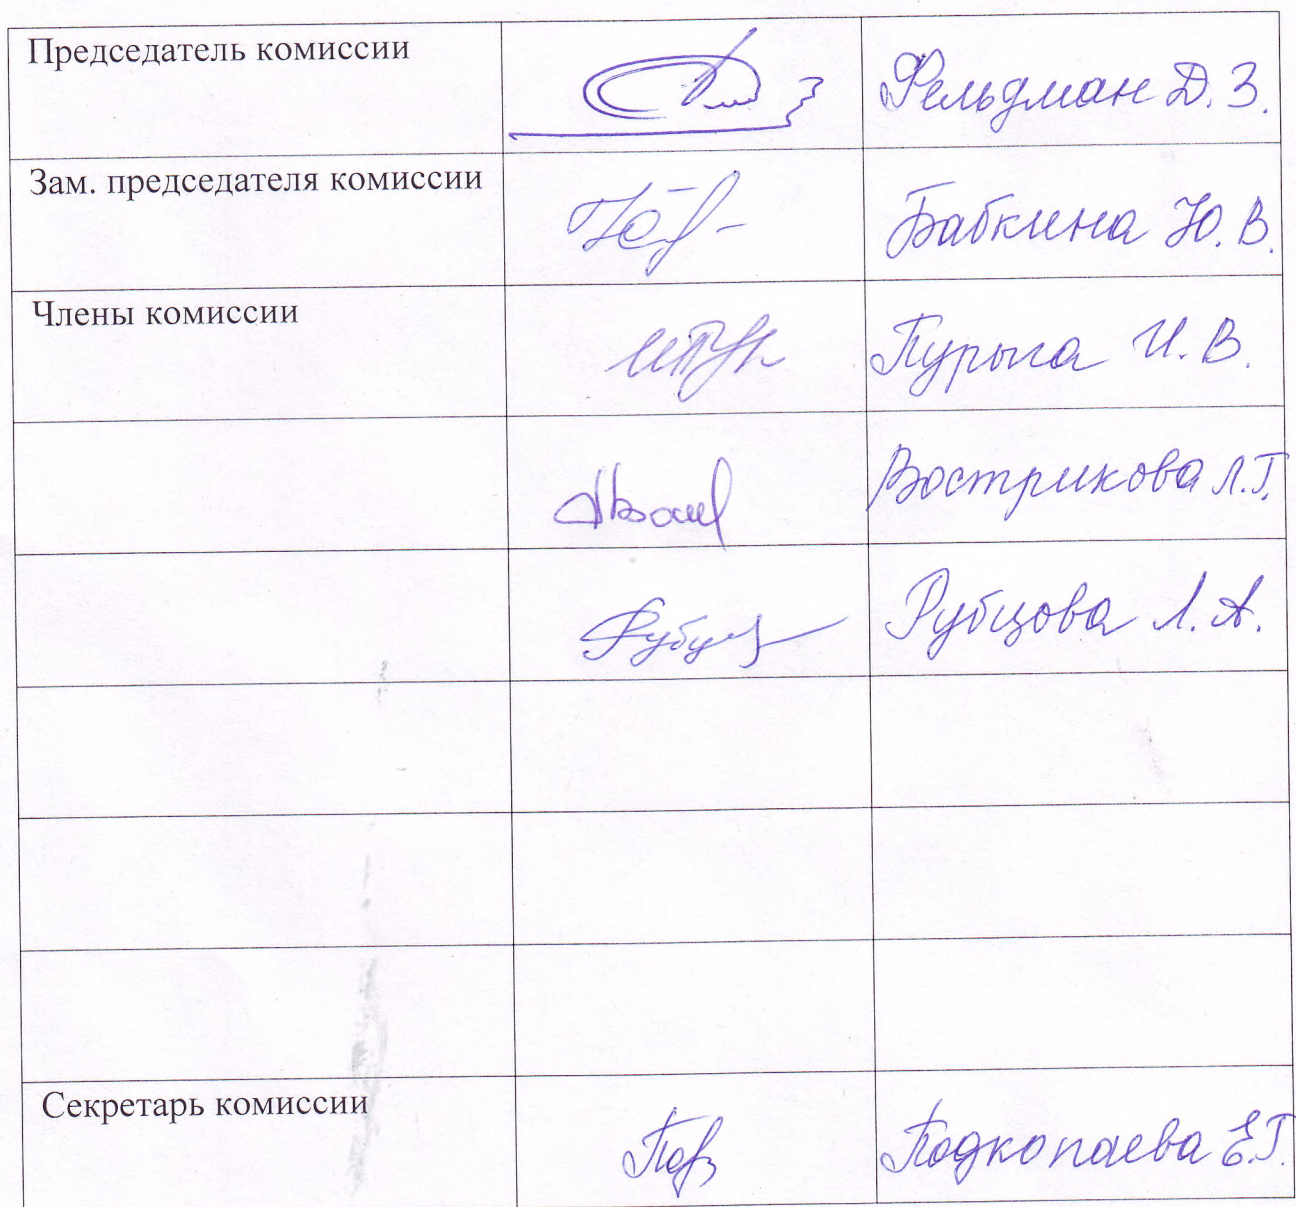 Председатель комиссии Фельдман Д. З.
Зам. председателя комиссии Бабкина Ю. В.
Члены комиссии Пурыга И. В.
Вострикова Л.Г.
Рубцова Л. А.
Секретарь комиссии Подкопаева Е.Г.